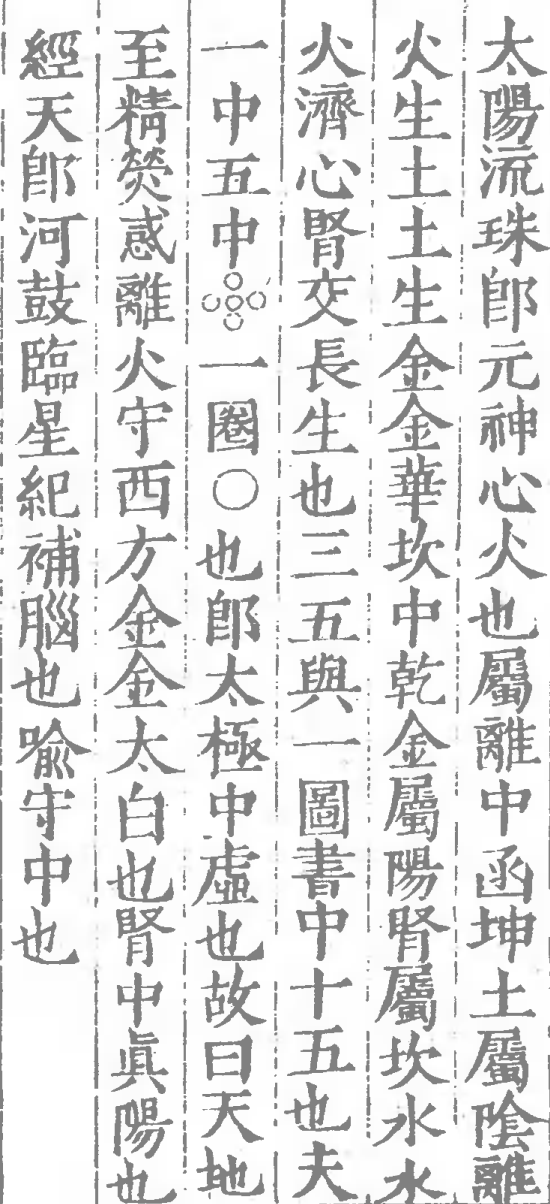 太陽流珠卽元神心火也屬離中函坤土屬陰離
火生土土生金金華坎中乾金屬陽腎屬坎水水
火濟心腎交長生也三五與一圖書中十五也夫
一中五中一圈○也卽太極中虛也故曰天地
至精熒惑離火守西方金金太白也腎中眞陽也
經天卽河鼓臨星紀補腦也喩守中也